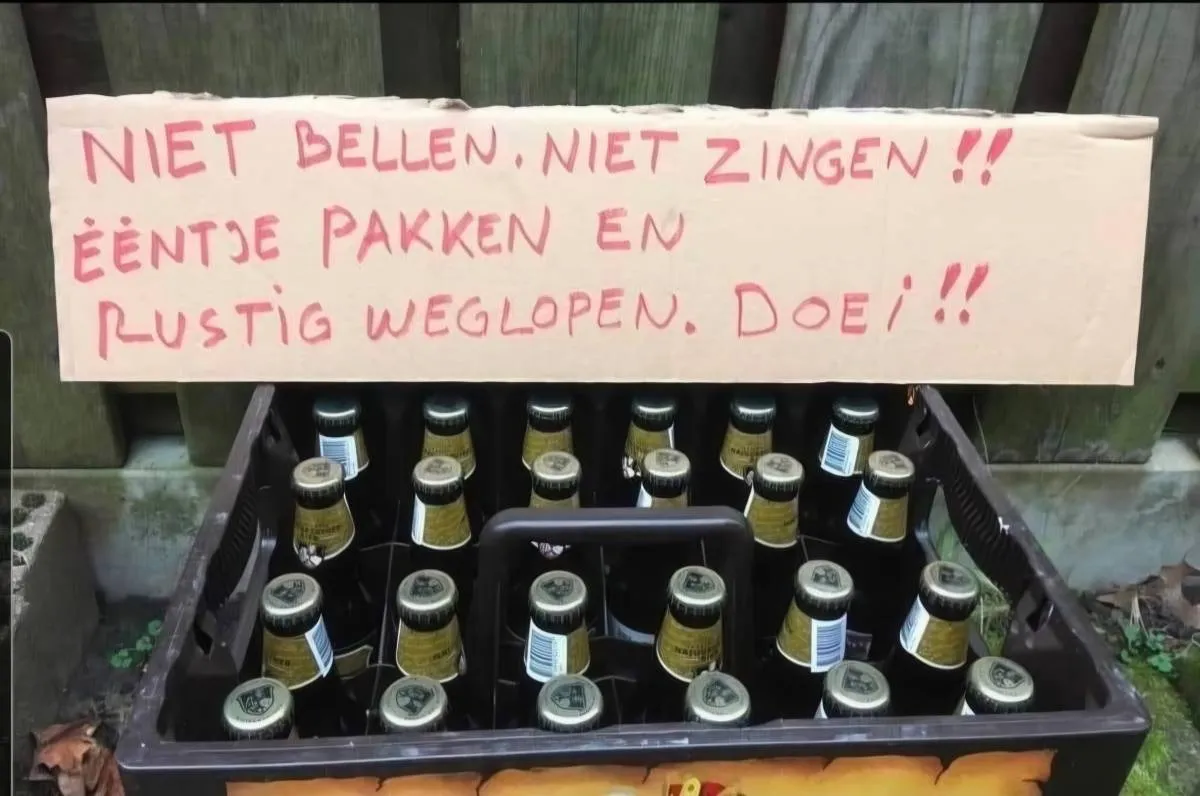 NIET BELLEN. NIET ZINGEN!!
ĖĖNTJE PAKKEN EN
RUSTIG WEGLOPEN. DOEi!!